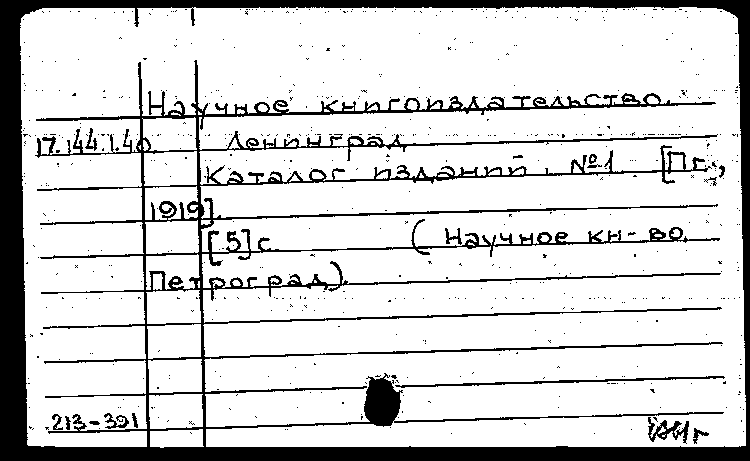 Научное книгоиздательство.
17.144.1.40. Ленинград
Каталог изданий. №1 [Пг.,
1919].
[5] с. (Научное кн-во.
Петроград).
213-391